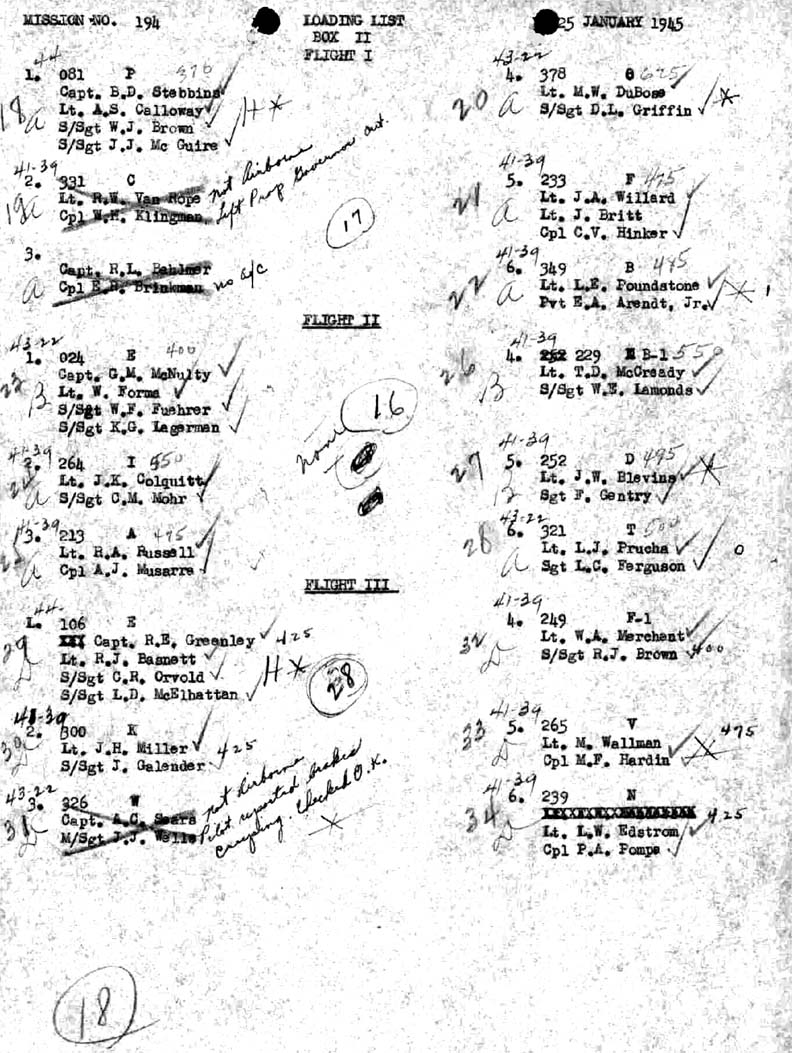 MISSION NO. 194
LOADING LIST
BOX II
FLIGHT I
25 JANUARY 1945
44
1. 081 P 376
Capt. B.D. Stebbins
Lt. A.S. Calloway
S/Sgt W.J. Brown
S/Sgt J.J. Mc Guire
18 a
H *
41-39
2. 331 C
Lt. R.W. Van Rope
Cpl W.H. Klingman
19 a
not airborne
Left Prop Governor out
17
3.
Capt. R.L. Bahlmer
Cpl E.H. Brinkman no a/c
a
43-22
4. 378 625
Lt. M.W. DuBose
S/Sgt D.L. Griffin
20 a
*
41-39
5. 233 F 475
Lt. J.A. Willard
Lt. J. Britt
Cpl C.V. Hinker
21 a
41-39
6. 349 B 475
Lt. L.E. Poundstone
Pvt E.A. Arendt, Jr.
22 a
*
FLIGHT II
43-22
1. 024 E 400
Capt. G.M. McNulty
Lt. W. Forma
S/Sgt W.F. Fuehrer
S/Sgt K.G. Lagerman
23 B
16
none
41-39
2. 264 I 550
Lt. J.K. Colquitt
S/Sgt C.M. Mohr
a
41-39
3. 213 A 475
Lt. R.A. Russell
Cpl A.J. Musarra
25 a
41-39
4. 252 229 B-1 550
Lt. T.D. McCready
S/Sgt W.E. Lamonds
26 B
41-39
5. 252 D 495
Lt. J.W. Blevins
Sgt F. Gentry
27 B
*
43-22
6. 321 T 500
Lt. L.J. Prucha
Sgt L.C. Ferguson
28 a
O
FLIGHT III
44-
1. 106 E
XXX Capt. R.E. Greenley 425
Lt. R.J. Basnett
S/Sgt C.R. Orvold
S/Sgt L.D. McElhattan
29 D
H *
28
41-39
2. 300 K
Lt. J.H. Miller 425
S/Sgt J. Galender
30 D
43-22
3. 326 W
Capt. A.C. Sears
M/Sgt J.J. Wells
31 D
not airborne
Pilot reported brakes
creeping. Checked O.K.
*
41-39
4. 249 F-1
Lt. W.A. Merchant
S/Sgt R.J. Brown 400
32 D
41-39
5. 265 V
Lt. M. Wallman 475
Cpl M.F. Hardin
33 D
*
41-39
6. 239 N
Lt. L.W. Edstrom 425
Cpl P.A. Pompa
34 D
18